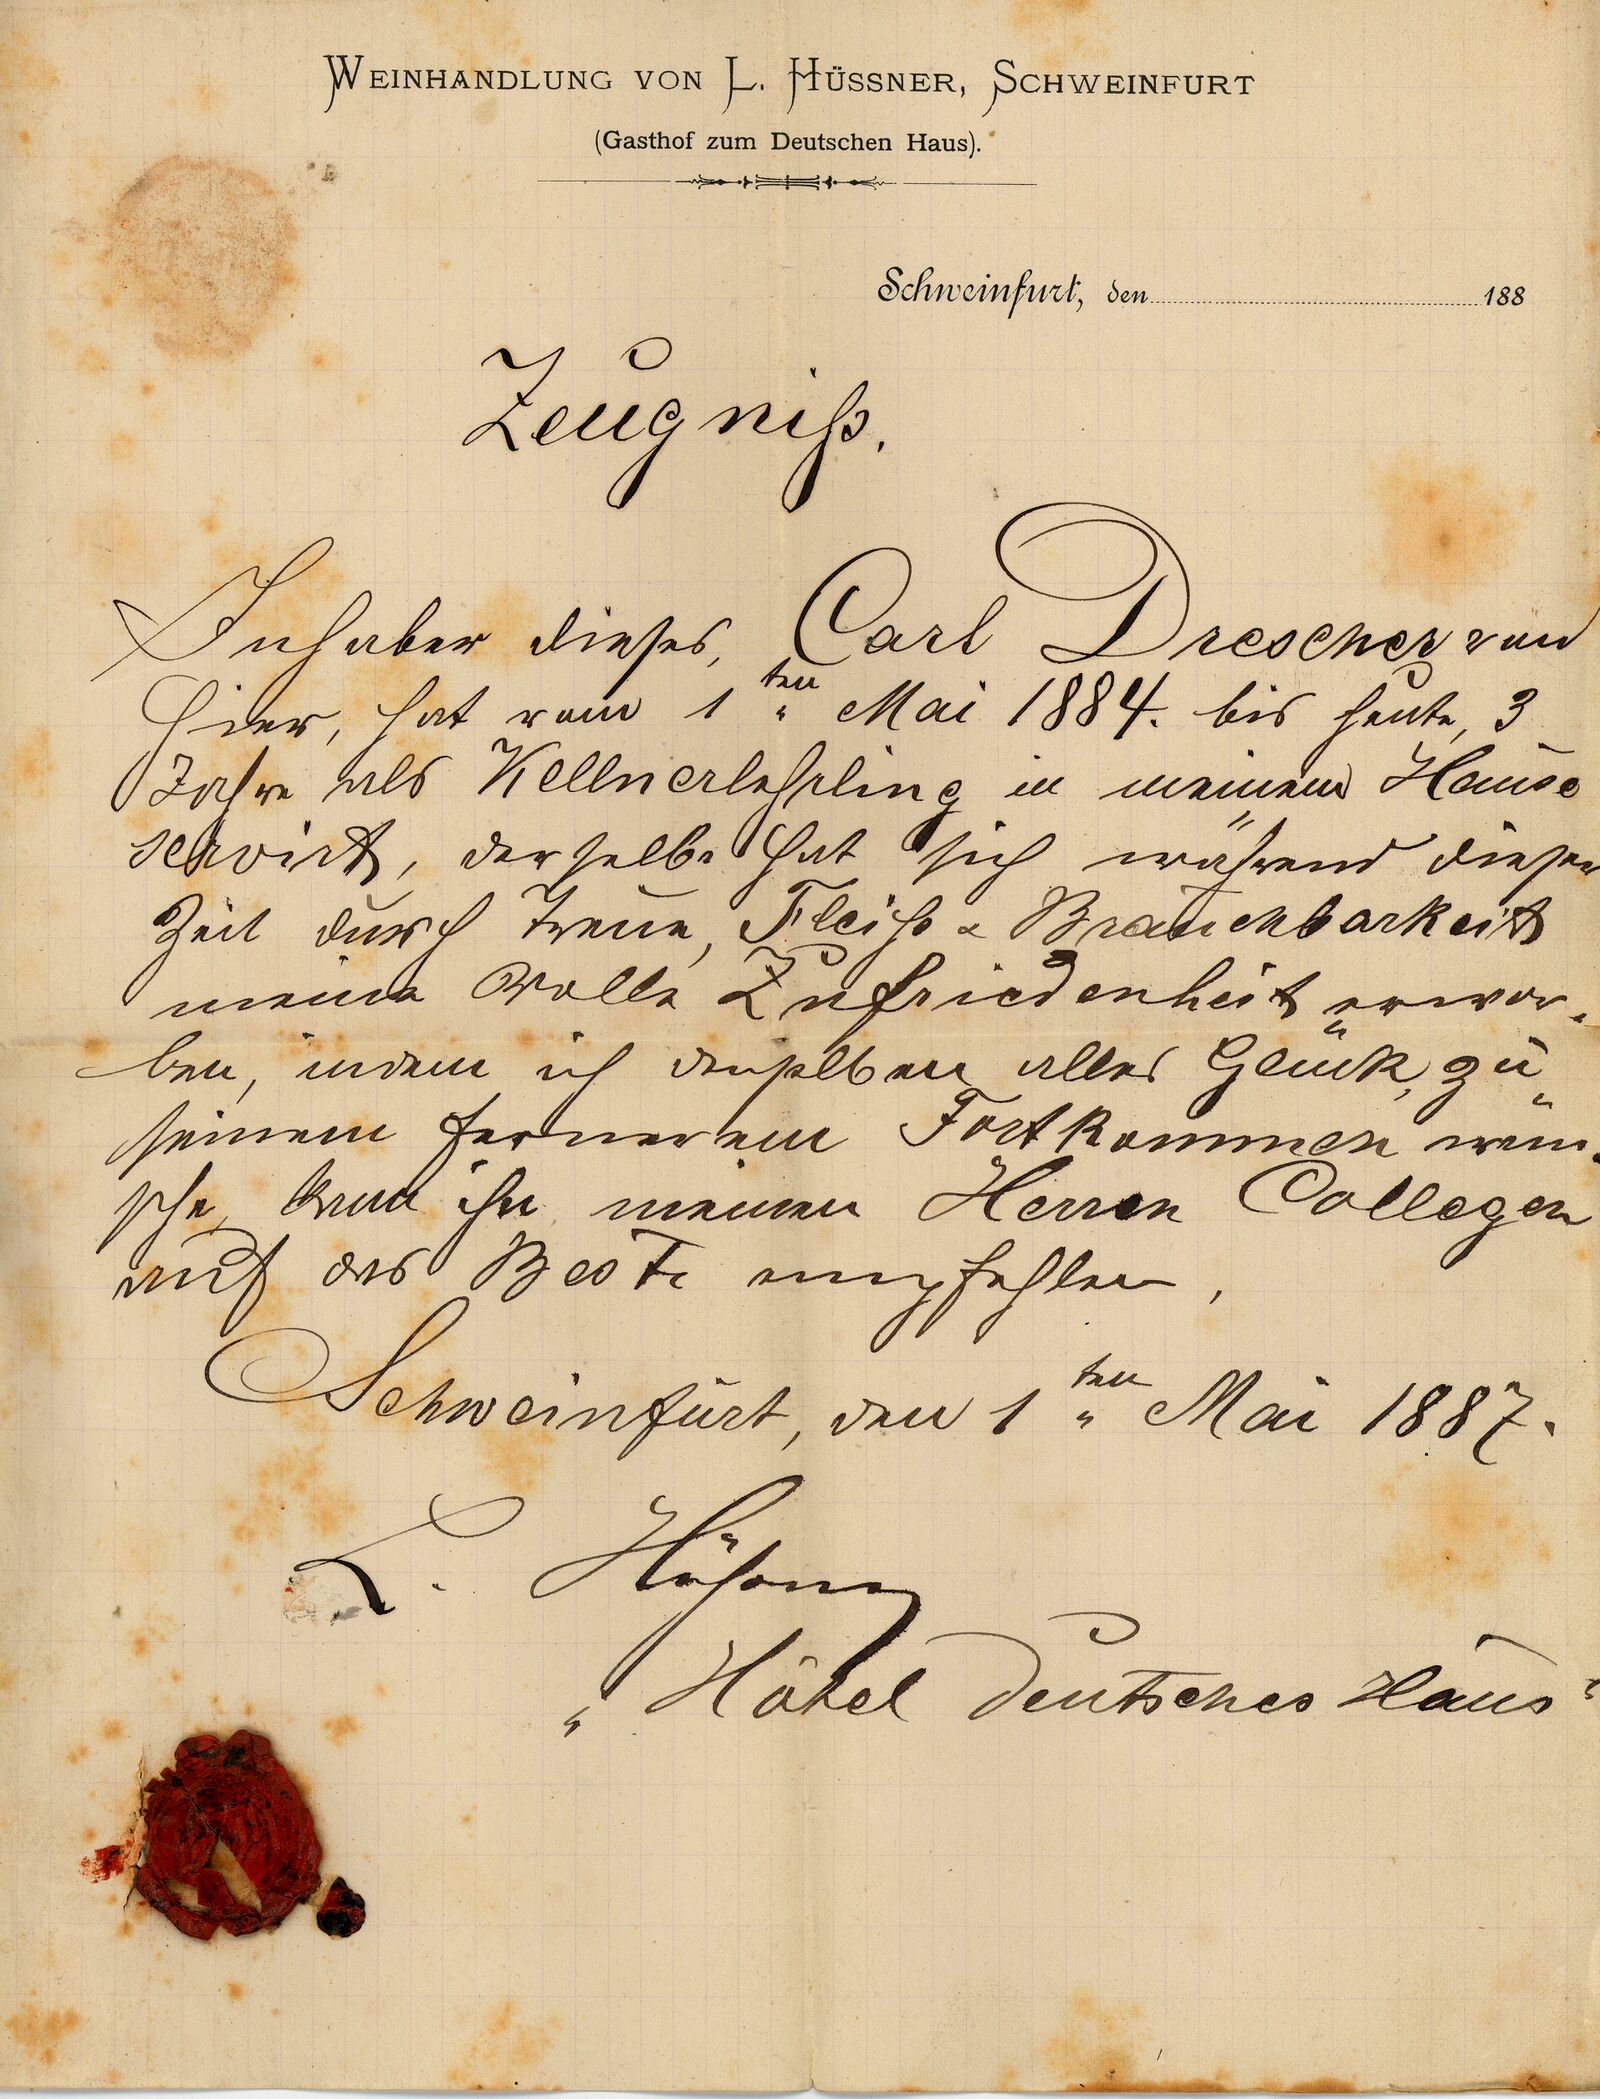 WEINHANDLUNG VON L. HÜSSNER, SCHWEINFURT
(Gasthof zum Deutschen Haus).
Schweinfurt, den 188
Zeugniß.
Inhaber dieses, Carl Drescher von
hier, hat vom 1ten Mai 1884. bis heute, 3
Jahre als Kellnerlehrling in meinem Hause
servirt, derselbe hat sich während dieser
Zeit durch Treue, Fleiß & Brauchbarkeit
meine volle Zufriedenheit erwor-
ben, indem ich demselben alles Glück, zu
seinem ferneren Fortkommen wün-
sche, kann ihn meinen Herren Collegen
auf das Beste empfehlen,
Schweinfurt, den 1ten Mai 1887.
L. Hüßner
„Hôtel Deutsches Haus"